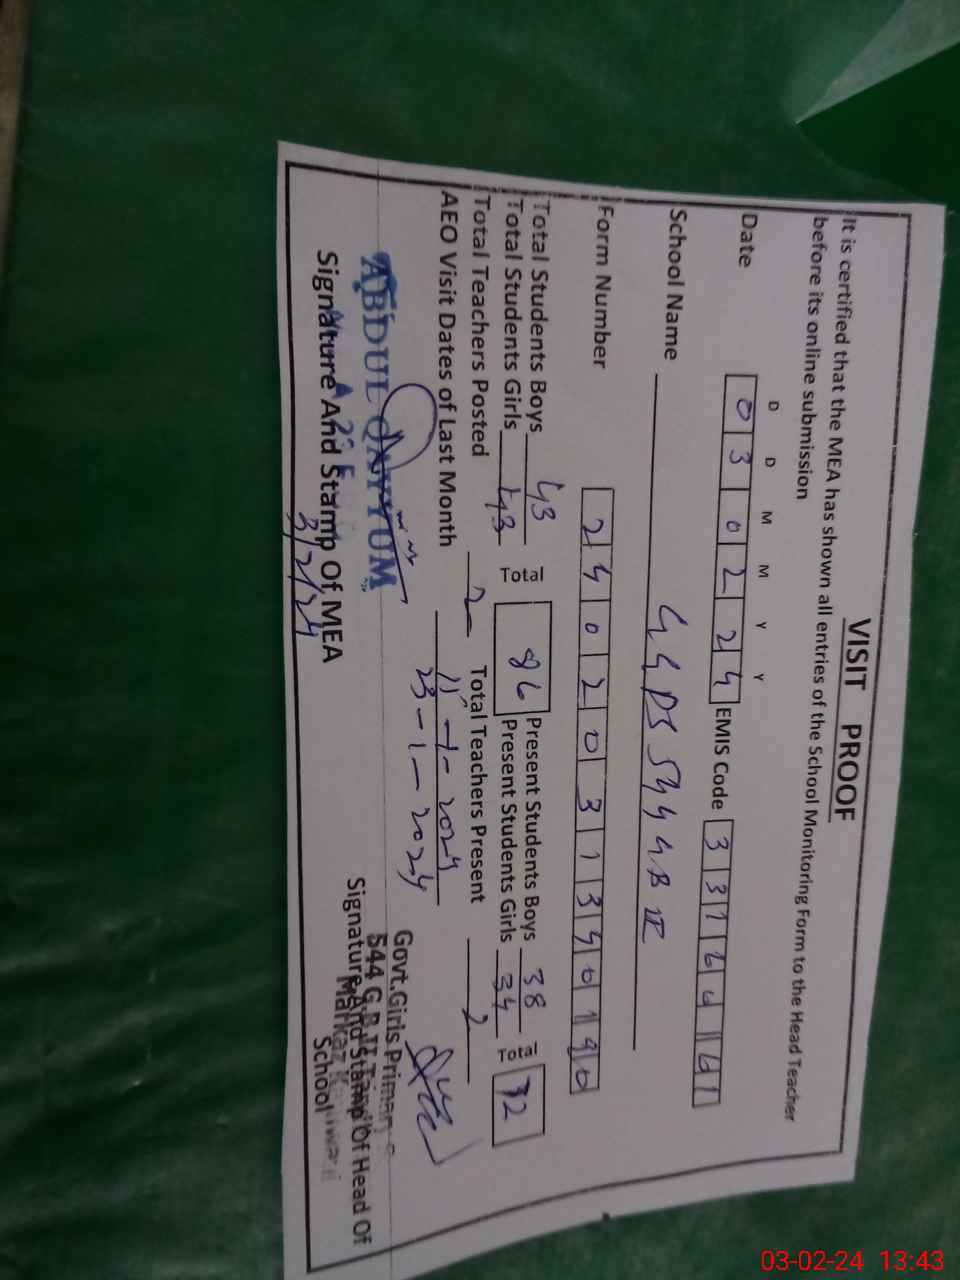 VISIT PROOF
It is certified that the MEA has shown all entries of the School Monitoring Form to the Head Teacher
before its online submission
D D M M Y Y
Date 0 3 0 2 2 4 EMIS Code 3 3 1 6
School Name GGPS 544 GB II
Form Number 2 4 0 2 0 3 1 3 4 0 1 9 0
Total Students Boys 43 Total 86 Present Students Boys 38 Total 72
Total Students Girls 43 Present Students Girls 34
Total Teachers Posted 2 Total Teachers Present 2
AEO Visit Dates of Last Month 11-1-2024
23-1-2024
ABDUL QAYYUM
Signature And Stamp Of MEA
3/2/24
Govt.Girls Primary
544 G.B II
Markaz
Signature And Stamp Of Head Of
School
03-02-24 13:43